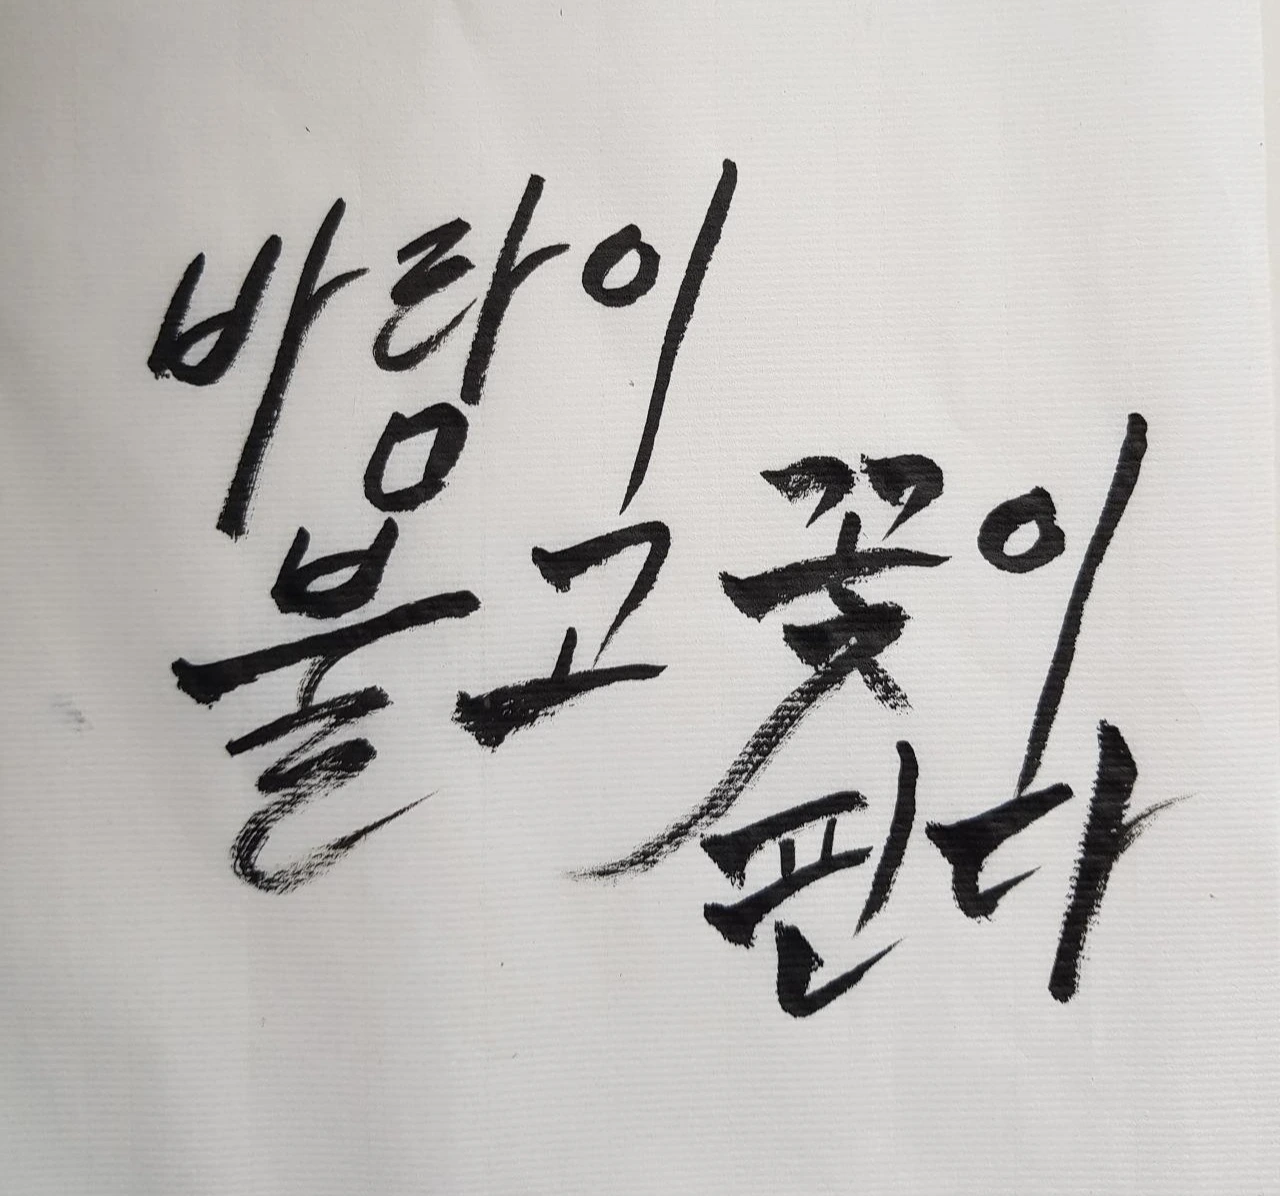 바람이
불고
꽃이
핀다